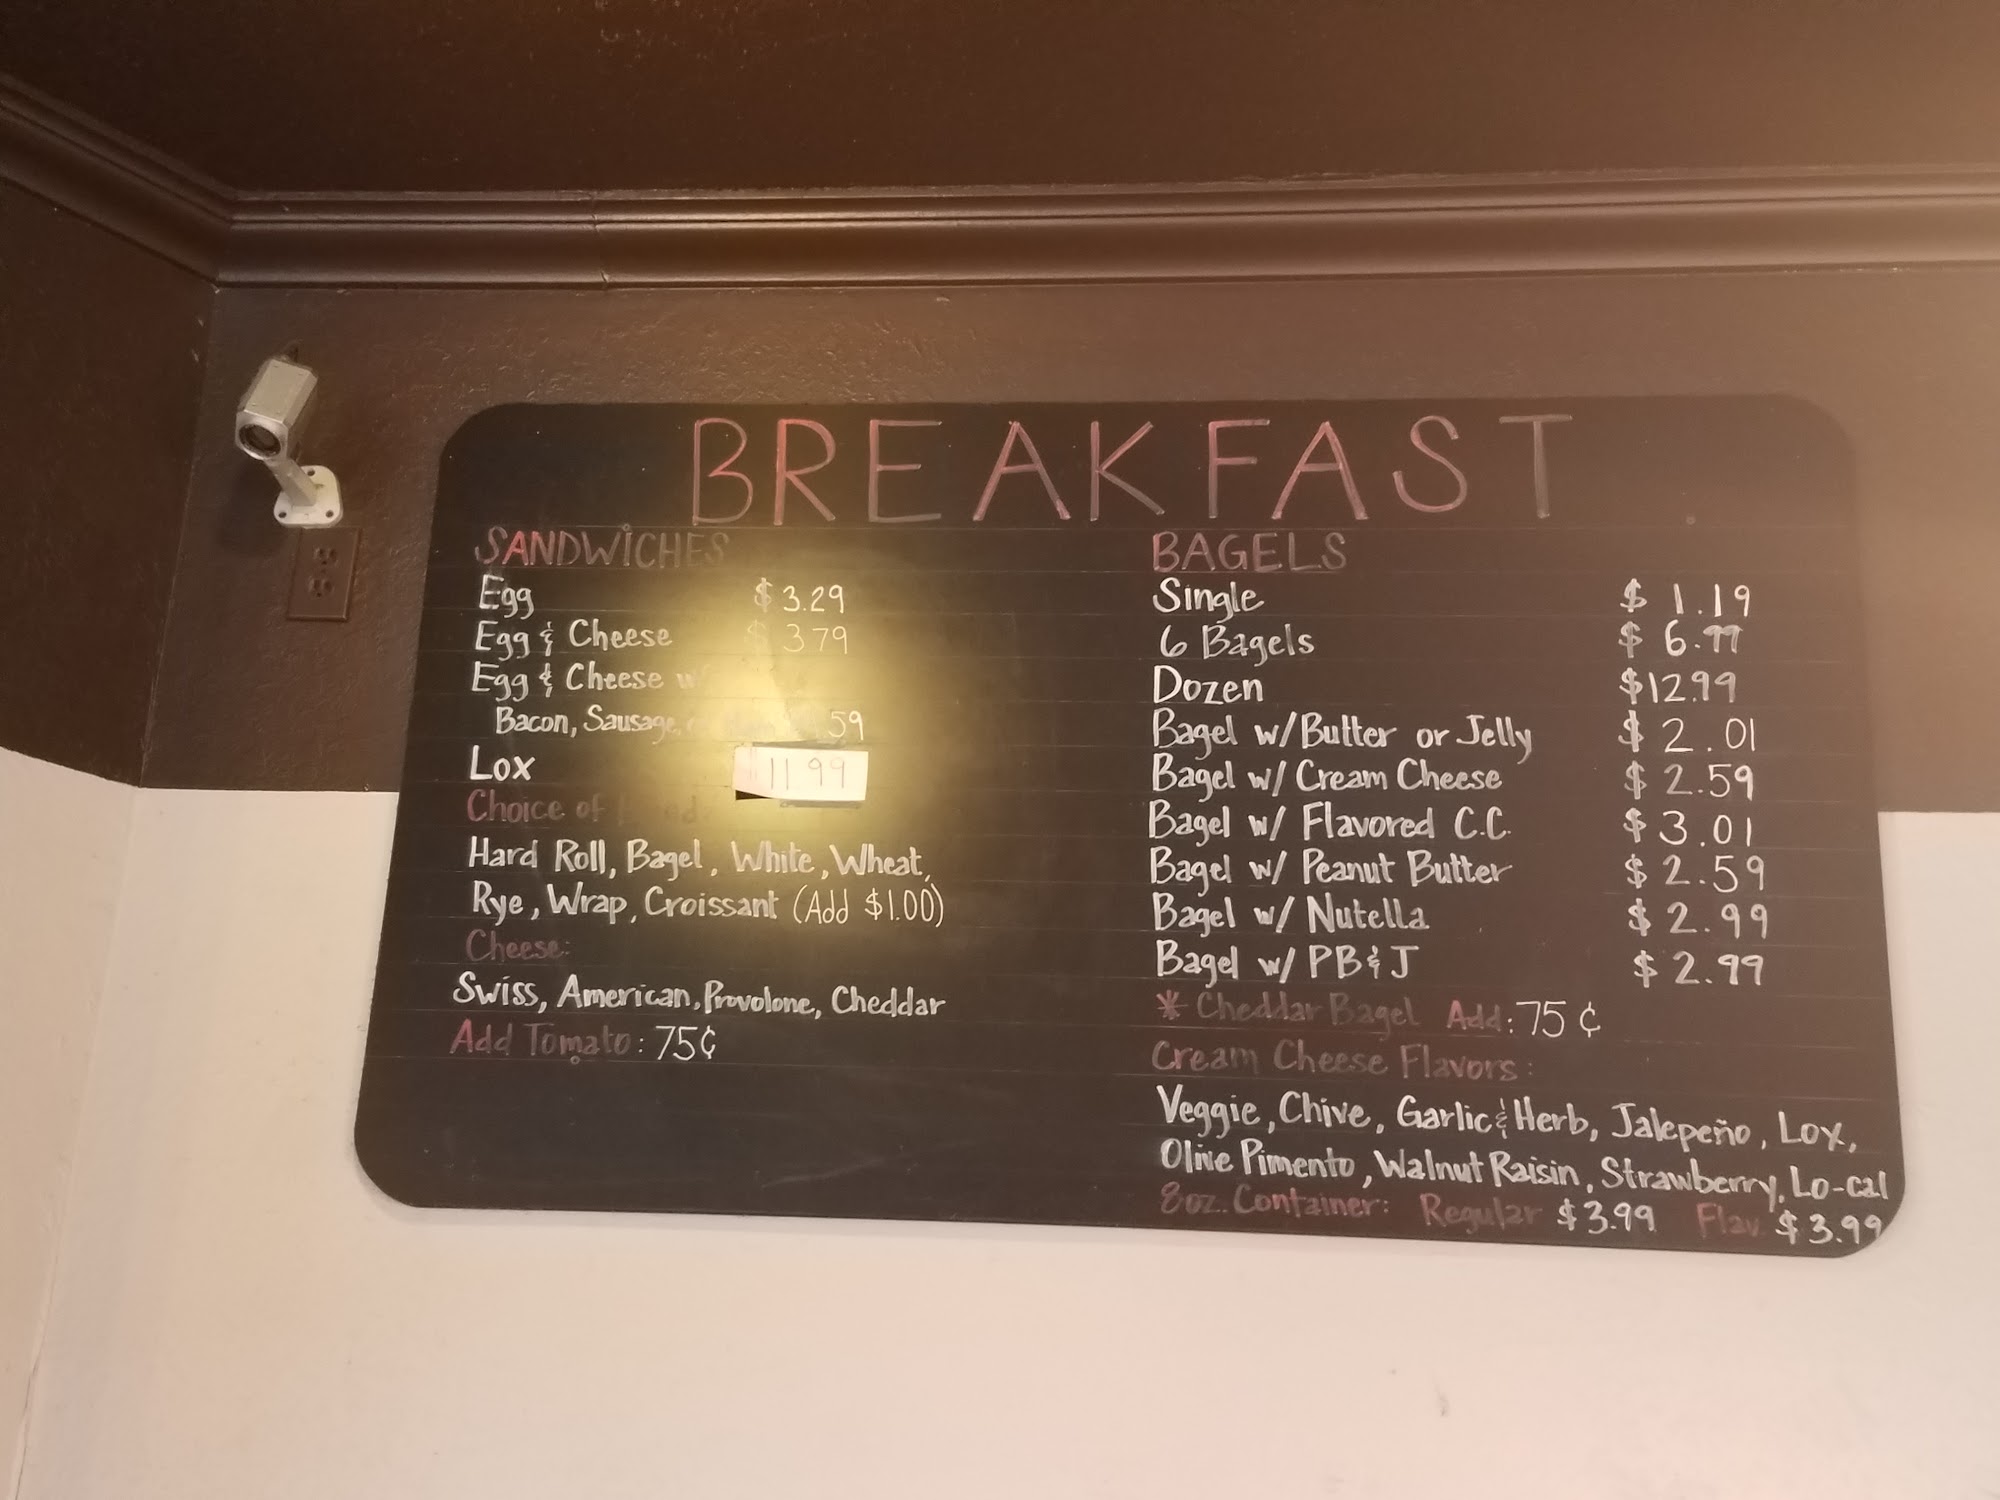 BREAKFAST
SANDWICHES
Egg $3.29
Egg & Cheese $3.79
Egg & Cheese w/
Bacon, Sausage, .59
Lox $11.99
Choice of Bread:
Hard Roll, Bagel, White, Wheat,
Rye, Wrap, Croissant (Add $1.00)
Cheese:
Swiss, American, Provolone, Cheddar
Add Tomato: 75¢
BAGELS
Single $1.19
6 Bagels $6.99
Dozen $12.99
Bagel w/Butter or Jelly $2.01
Bagel w/ Cream Cheese $2.59
Bagel w/ Flavored C.C. $3.01
Bagel w/ Peanut Butter $2.59
Bagel w/ Nutella $2.99
Bagel w/ PB&J $2.99
* Cheddar Bagel Add: 75¢
Cream Cheese Flavors:
Veggie, Chive, Garlic & Herb, Jalepeño, Lox,
Olive Pimento, Walnut Raisin, Strawberry, Lo-cal
8oz. Container: Regular $3.99 Flav. $3.99